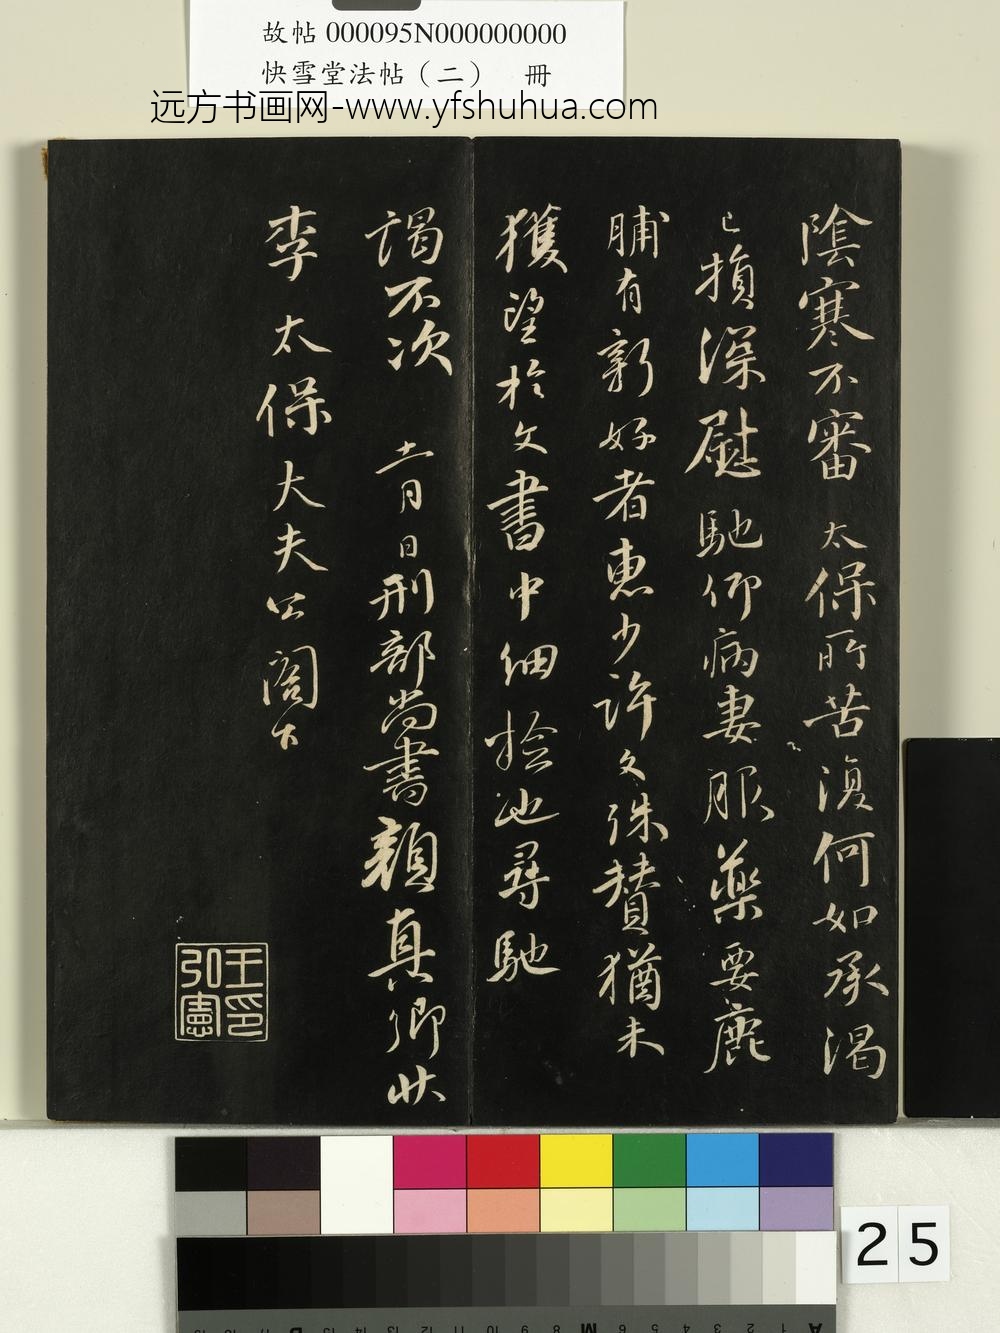 故帖000095N000000000
快雪堂法帖（二） 冊
远方书画网-www.yfshuhua.com
陰寒不審 太保所苦復何如承渴
已損深慰馳仰病妻服藥要鹿
脯有新好者惠少許文殊贊猶未
獲望於文書中細撿也尋馳
謁不次 十一月日刑部尚書顏真卿狀
李太保大夫公閣下
王弘憲印
25